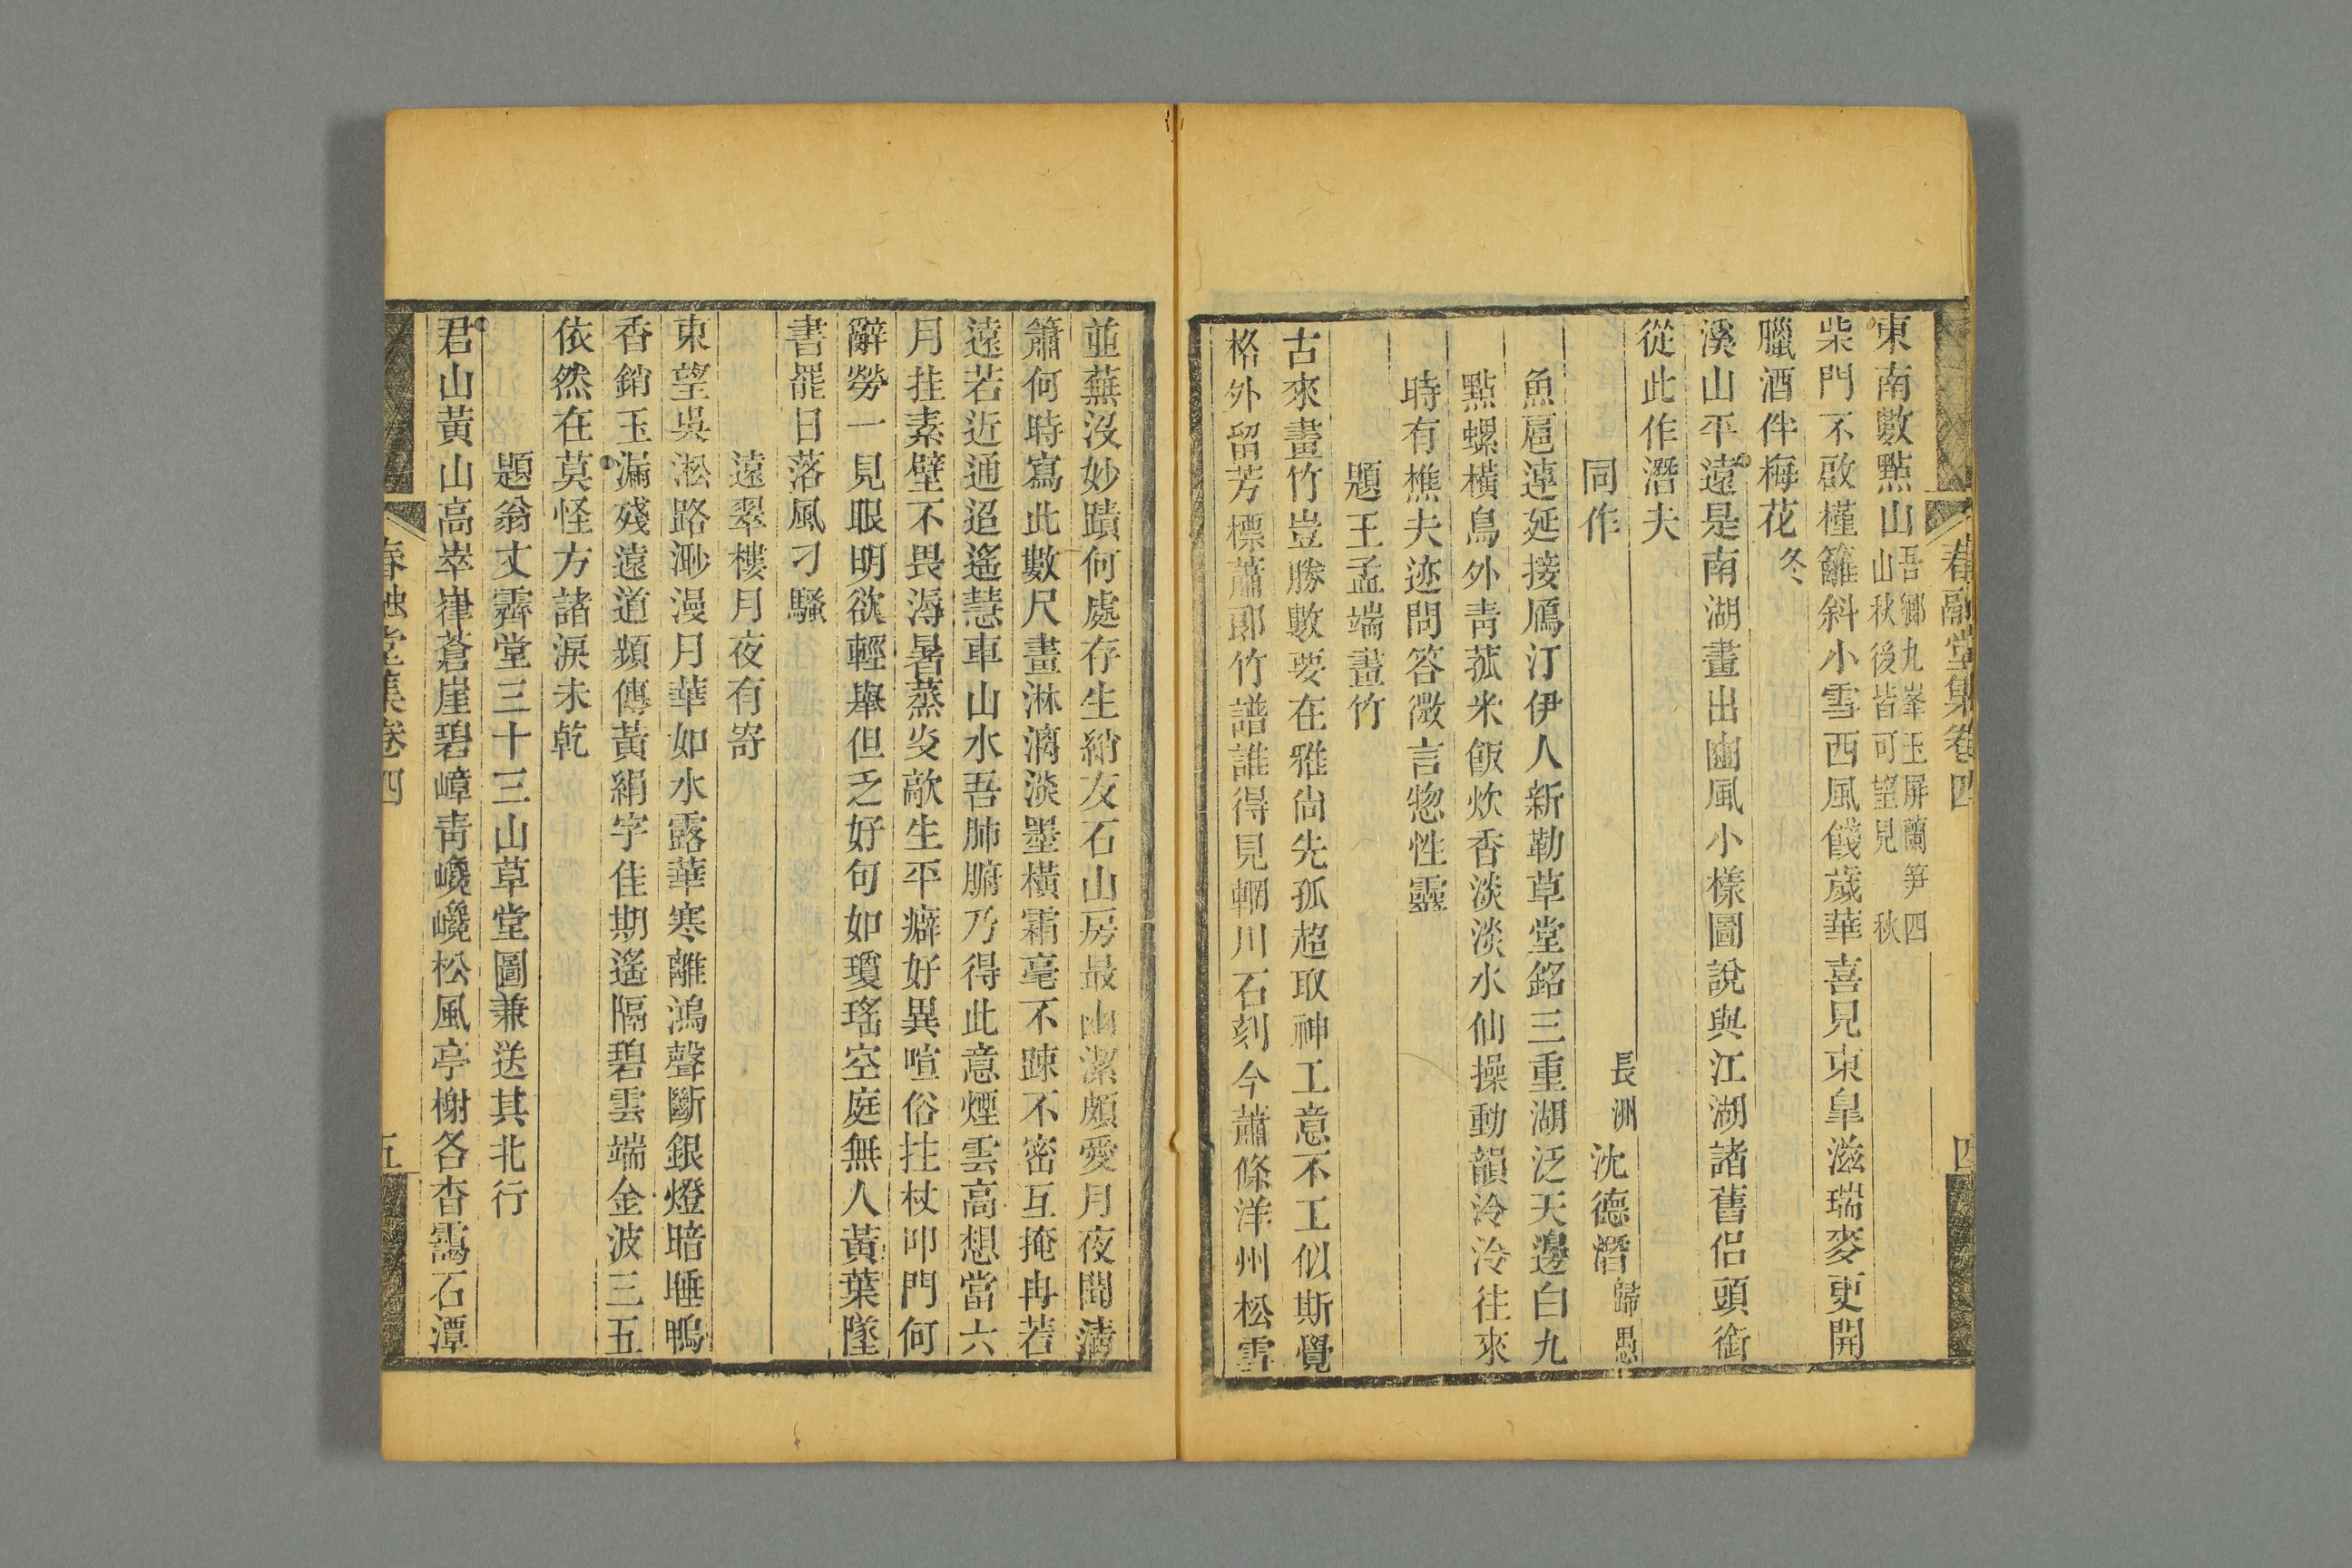 春融堂集卷四
四
東南數點山吾鄉九峯玉屏蘭笋四山秋後皆可望見 秋
柴門不啟槿籬斜小雪西風餞歲華喜見東皐滋瑞麥更開
臘酒伴梅花冬
溪山平遠是南湖畫出豳風小樣圖說與江湖諸舊侶頭銜
從此作潛夫
同作 長洲沈德潛歸愚
魚扈連延接鴈汀伊人新勒草堂銘三重湖泛天邊白九
點螺橫鳥外青菰米飯炊香淡淡水仙操動韻泠泠往來
時有樵夫迹問答微言惣性靈
題王孟端畫竹
古來畫竹豈勝數要在雅尙先孤超取神工意不工似斯覺
格外留芳標蕭郎竹譜誰得見輞川石刻今蕭條洋州松雪
並蕪沒妙蹟何處存生綃友石山房最幽潔頗愛月夜聞淸
簫何時寫此數尺畫淋漓淡墨橫霜毫不疎不密互掩冉若
遠若近通迢遙慧車山水吾肺腑乃得此意煙雲高想當六
月挂素壁不畏溽暑蒸炎歊生平癖好異喧俗拄杖叩門何
辭勞一見眼明欲輕舉但乏好句如瓊瑤空庭無人黃葉墜
書罷日落風刁騷
遠翠樓月夜有寄
東望吳淞路渺漫月華如水露華寒離鴻聲斷銀燈暗睡鴨
香銷玉漏殘遠道頻傳黃絹字佳期遙隔碧雲端金波三五
依然在莫怪方諸淚未乾
題翁丈霽堂三十三山草堂圖兼送其北行
君山黃山高崒嵂蒼崖碧嶂靑巉巉松風亭榭各杳靄石潭
春融堂集卷四
五